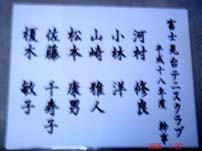 富士見台テニスクラブ
平成十八年度 幹事
河村 修良
小林 洋
山崎 雅人
松本 康男
佐藤 千寿子
榎木 敏子